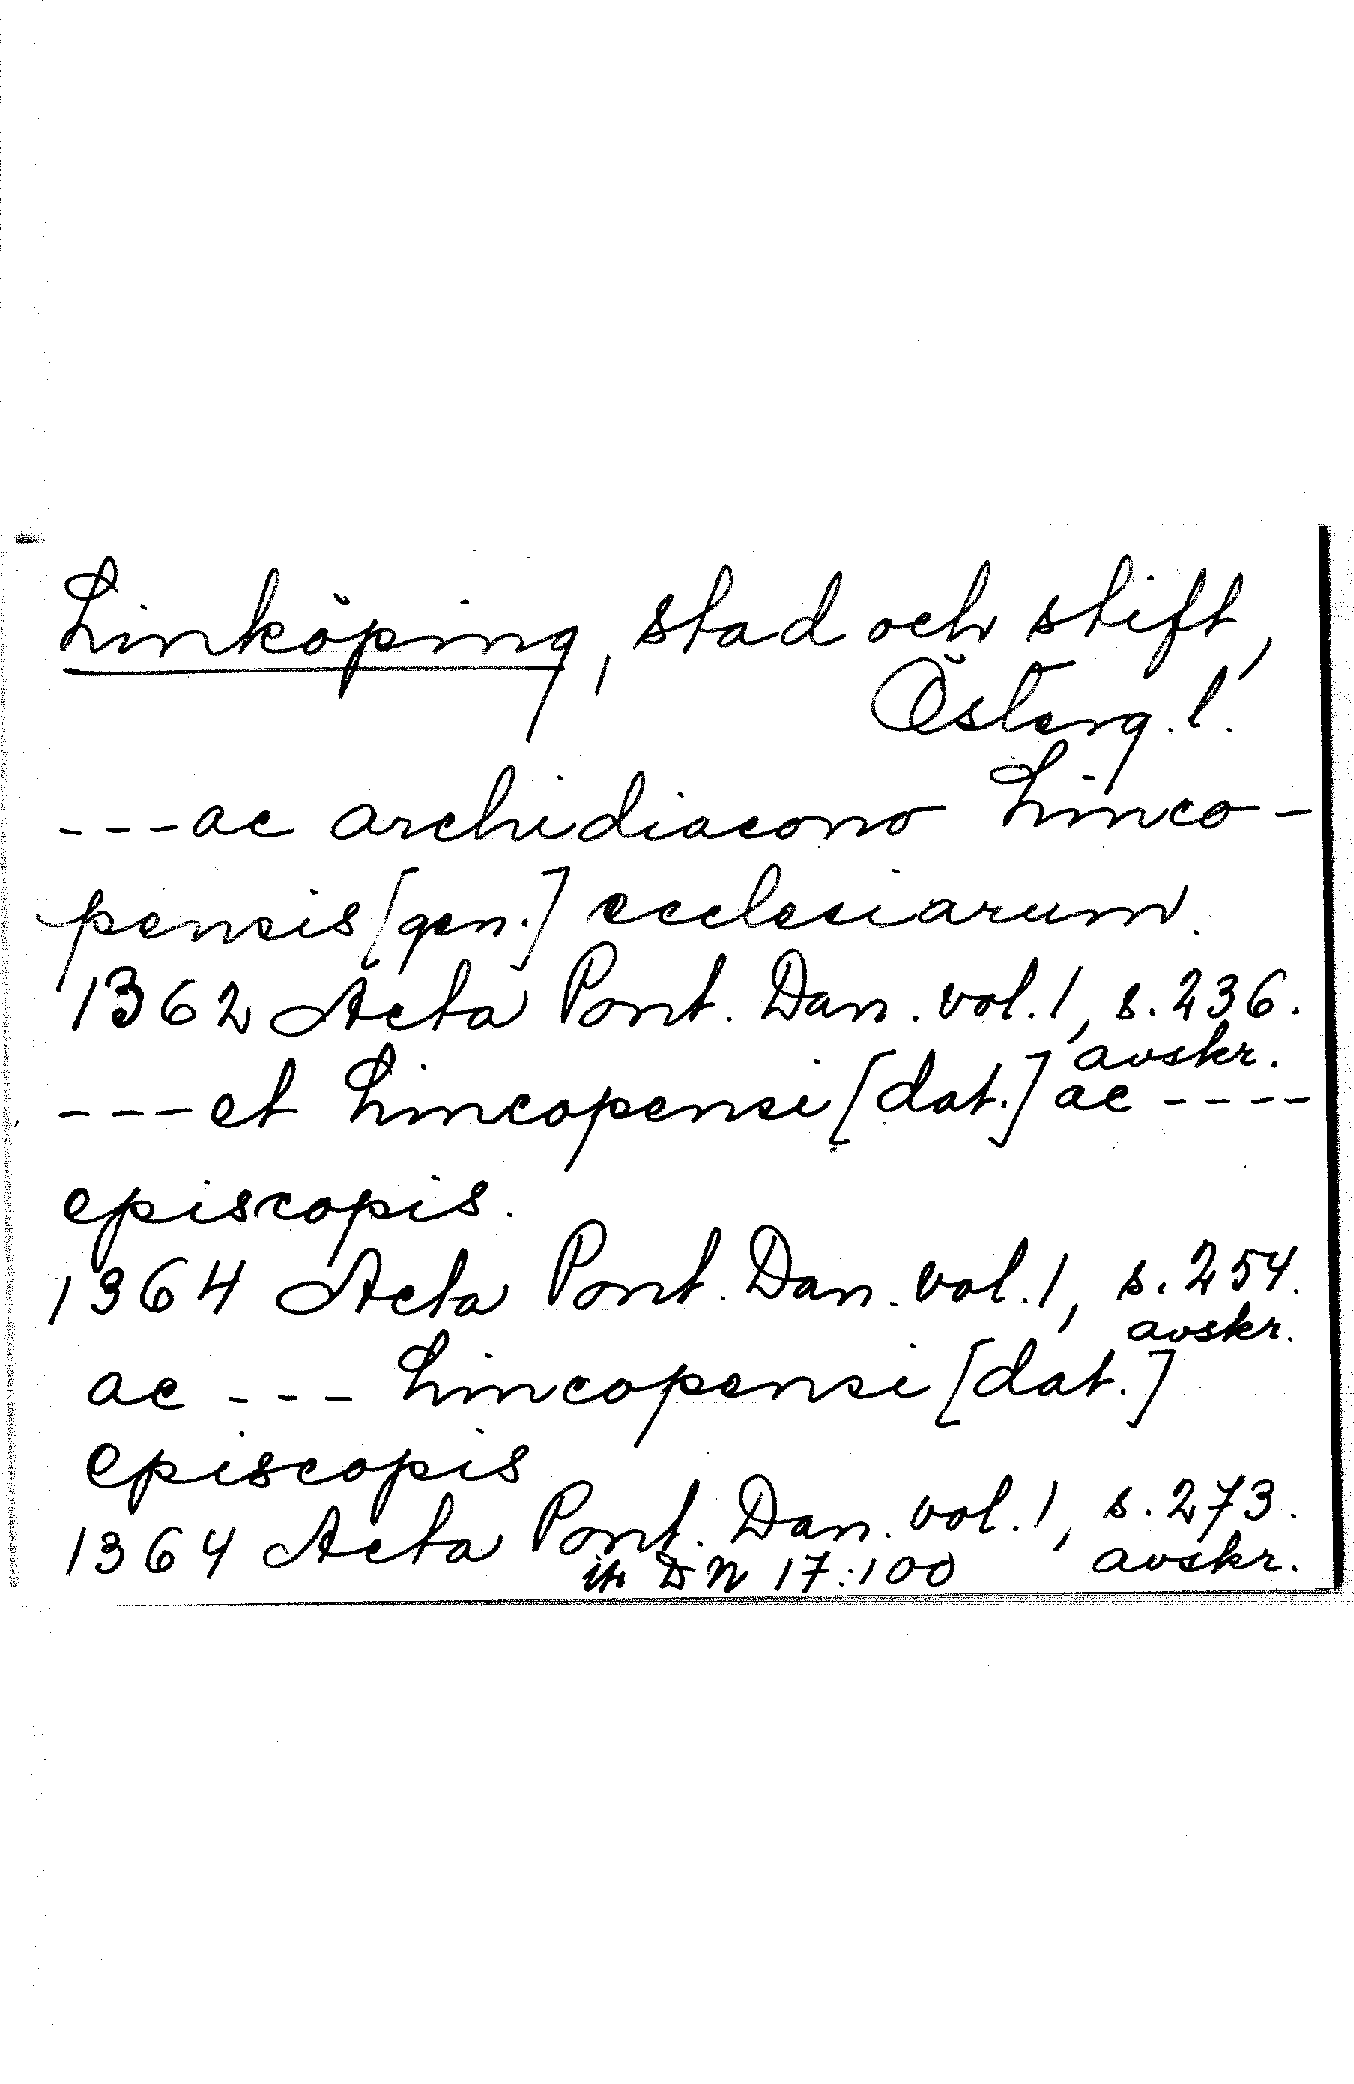 Linköping, stad och stift,
Österg.l.
---ac archidiacono Linco-
pensis [gen.] ecclesiarum.
1362 Acta Pont. Dan. vol.1, s.236.
avskr.
---et Lincopensi [dat.] ac ----
episcopis.
1364 Acta Pont. Dan. vol.1, s.254.
avskr.
ac --- Lincopensi [dat.]
episcopis
1364 Acta Pont. Dan. vol.1, s.273.
DN 17:100 avskr.